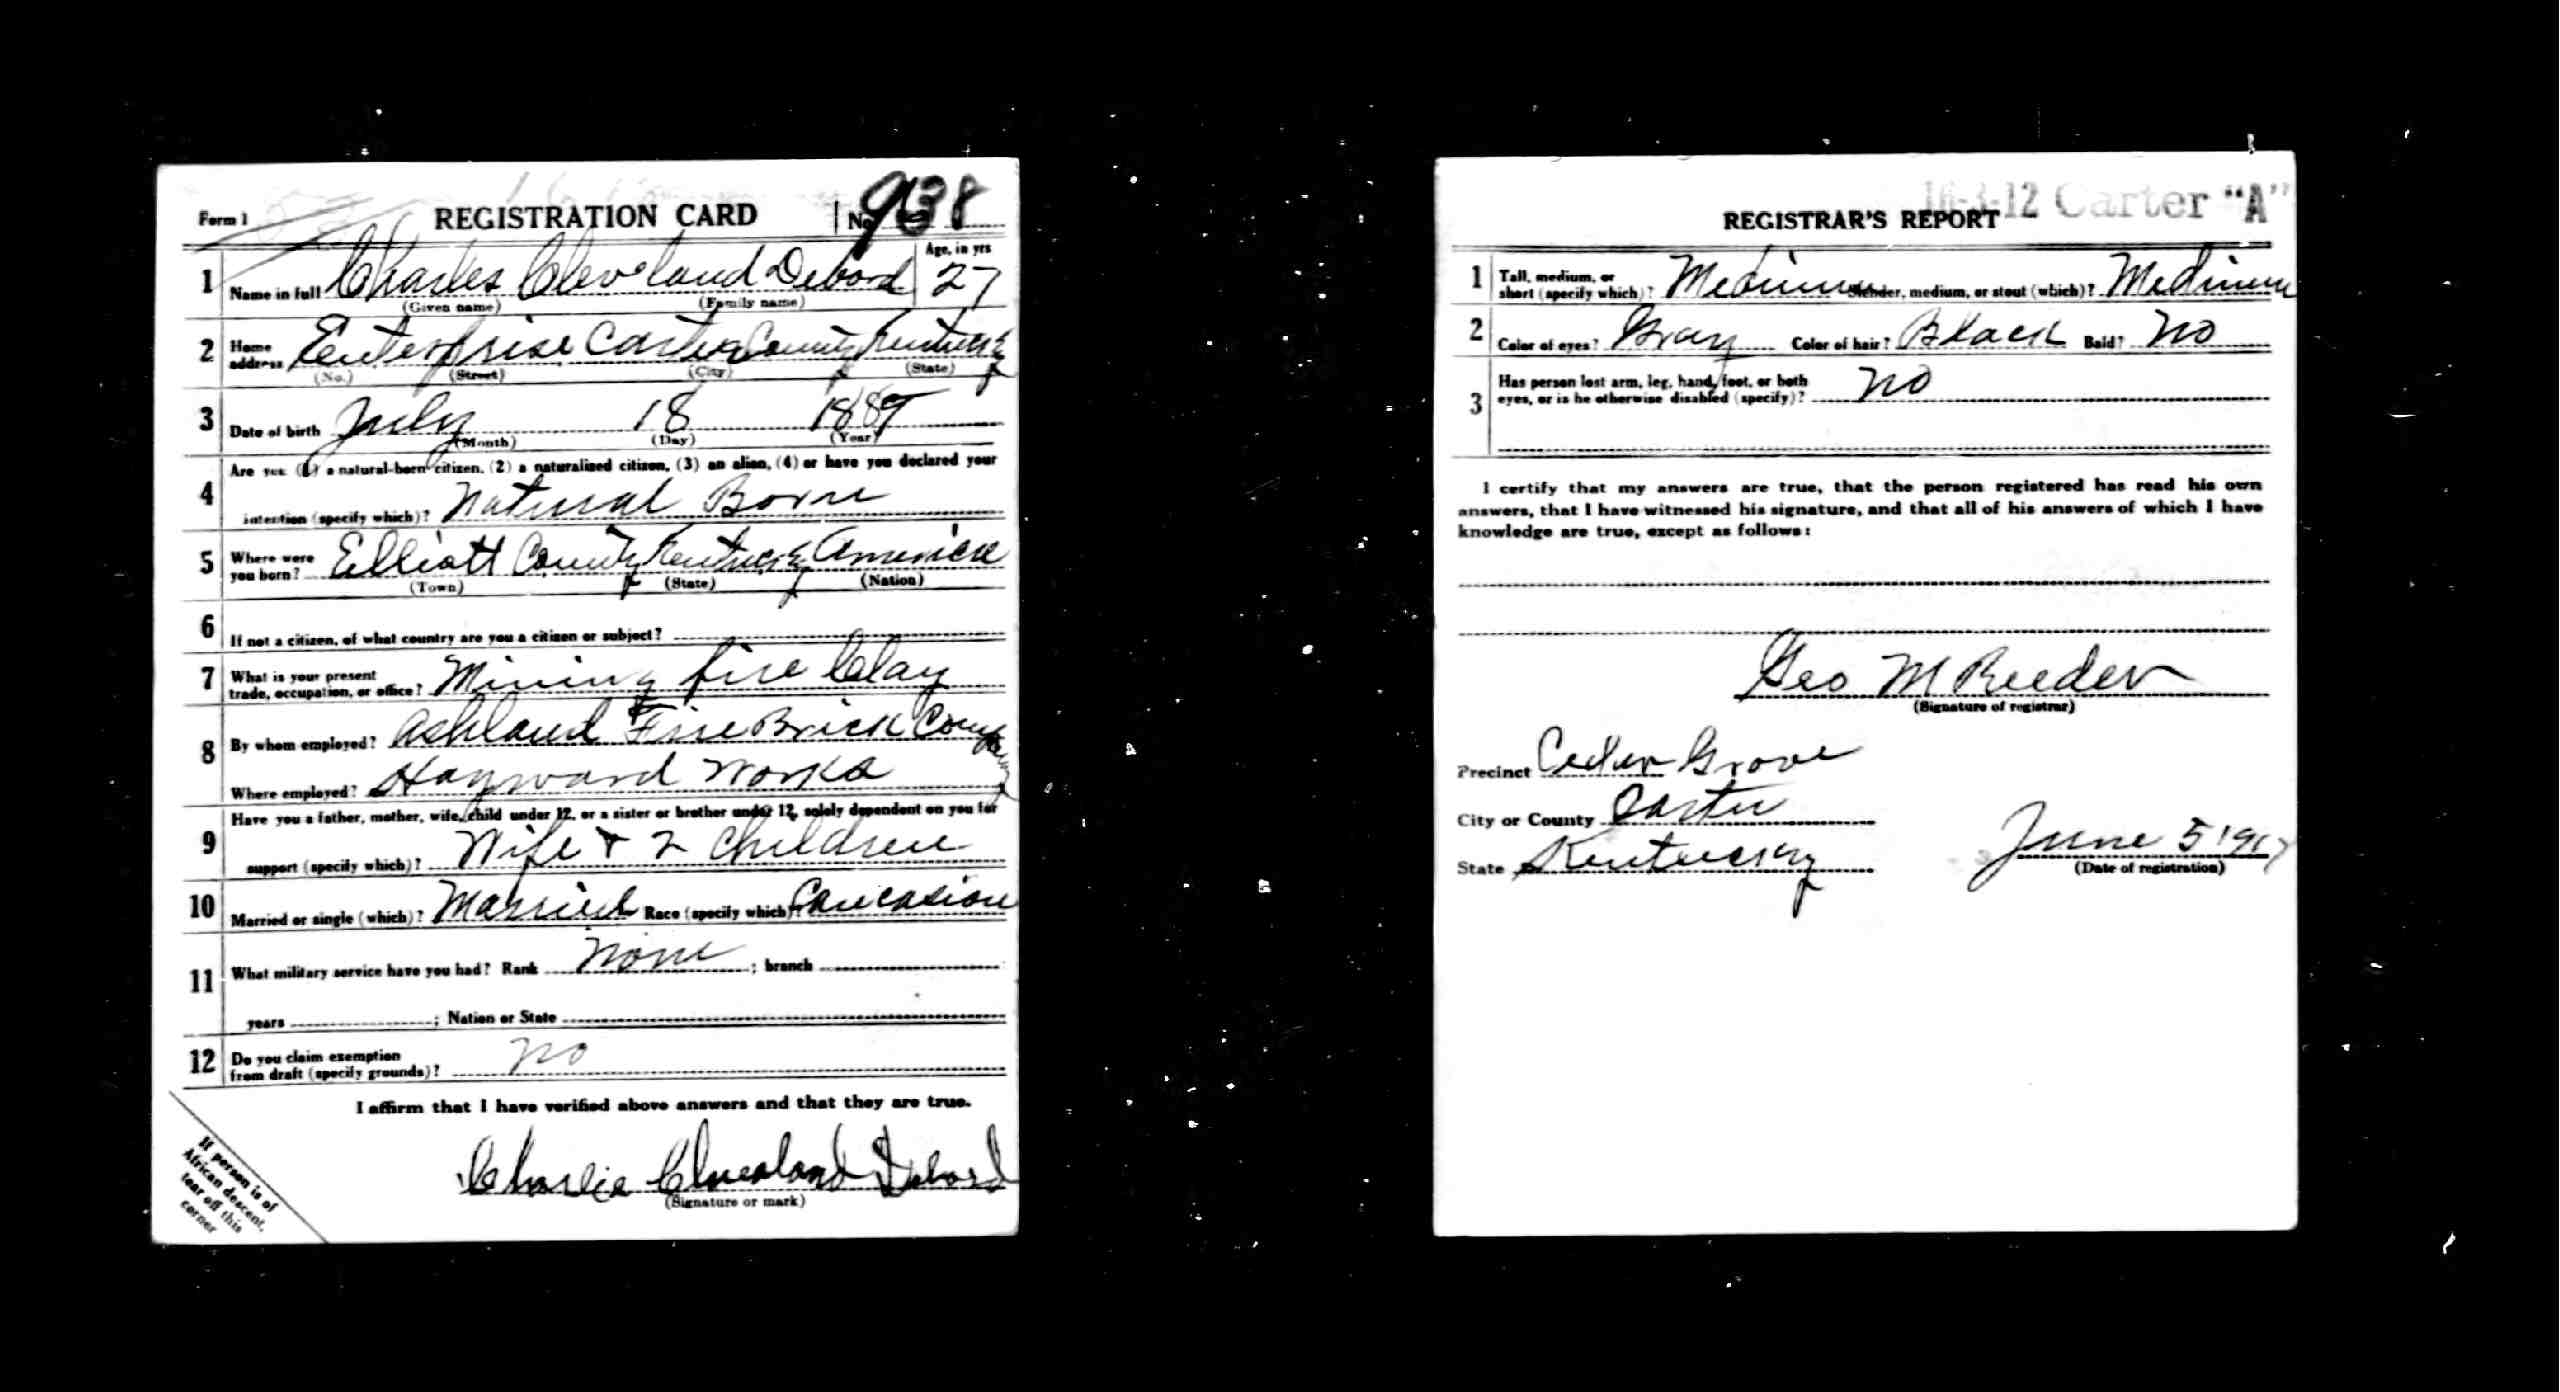 Form 1
REGISTRATION CARD
No. 938
Age, in yrs
1 Name in full Charles Cleveland Debord 27
(Given name) (Family name)
2 Home address Enterprise Carter County Kentucky
(No.) (Street) (City) (State)
3 Date of birth July 18 1889
(Month) (Day) (Year)
Are you (1) a natural-born citizen, (2) a naturalized citizen, (3) an alien, (4) or have you declared your
4 intention (specify which)? Natural Born
5 Where were you born? Elliott County Kentucky America
(Town) (State) (Nation)
6 If not a citizen, of what country are you a citizen or subject?
7 What is your present
trade, occupation, or office? Mining fire Clay
8 By whom employed? Ashland Fire Brick Company
Where employed? Hayward Works
Have you a father, mother, wife, child under 12, or a sister or brother under 12, solely dependent on you for
9 support (specify which)? Wife & 2 Children
10 Married or single (which)? Married Race (specify which)? Caucasion
11 What military service have you had? Rank None ; branch
years ; Nation or State
12 Do you claim exemption
from draft (specify grounds)? No
I affirm that I have verified above answers and that they are true.
Charlie Cluealand Debord
(Signature or mark)
If person is of
African descent,
tear off this
corner
16-3-12 Carter "A"
REGISTRAR'S REPORT
1 Tall, medium, or
short (specify which)? Medium Slender, medium, or stout (which)? Medium
2 Color of eyes? Gray Color of hair? Black Bald? No
3 Has person lost arm, leg, hand, foot, or both
eyes, or is he otherwise disabled (specify)? No
I certify that my answers are true, that the person registered has read his own
answers, that I have witnessed his signature, and that all of his answers of which I have
knowledge are true, except as follows:
Geo M Reeder
(Signature of registrar)
Precinct Ceder Grove
City or County Carter
State Kentucky
June 5 1917
(Date of registration)